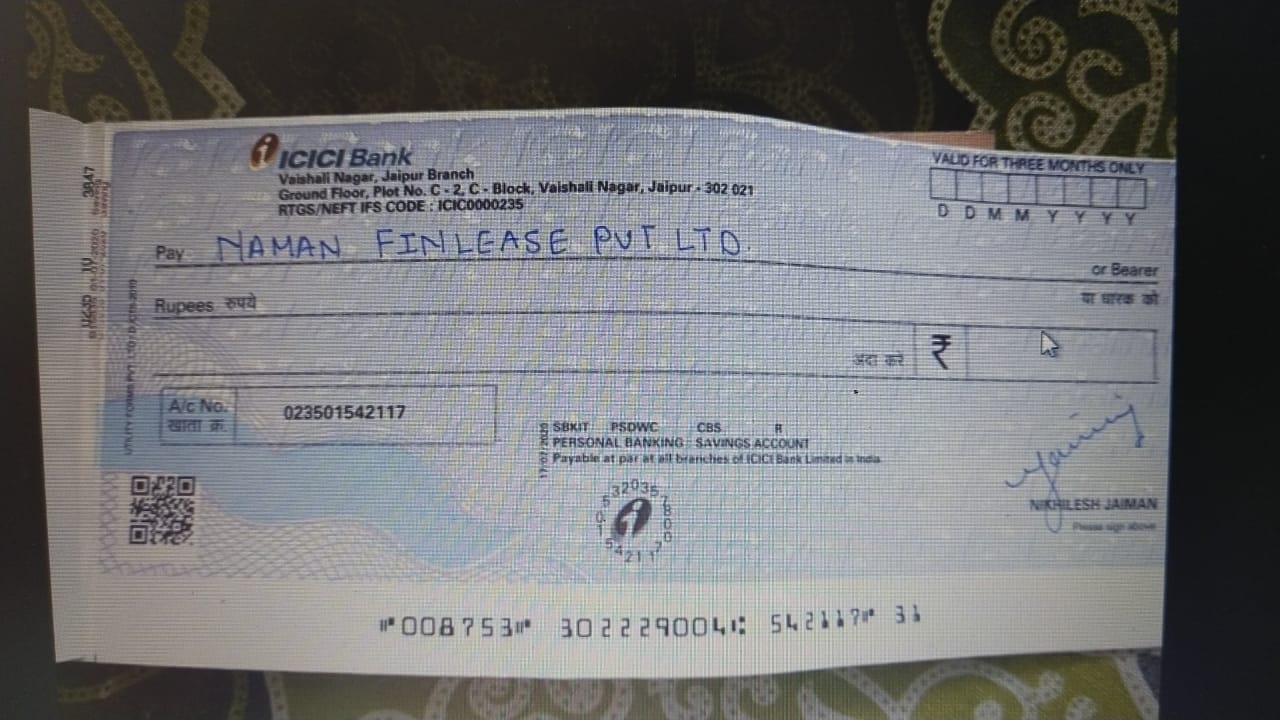 ICICI Bank
Vaishali Nagar, Jaipur Branch
Ground Floor, Plot No. C - 2, C - Block, Vaishali Nagar, Jaipur - 302 021
RTGS/NEFT IFS CODE : ICIC0000235
VALID FOR THREE MONTHS ONLY
D D M M Y Y Y Y
Pay NAMAN FINLEASE PVT LTD.
or Bearer
Rupees रुपये
या धारक को
अदा करें ₹
A/c No.
खाता क्र.
023501542117
SBKIT PSDWC CBS R
PERSONAL BANKING : SAVINGS ACCOUNT
Payable at par at all branches of ICICI Bank Limited in India
17/07/2020
NIKHILESH JAIMAN
Please sign above
"008753" 302229004: 542117" 31